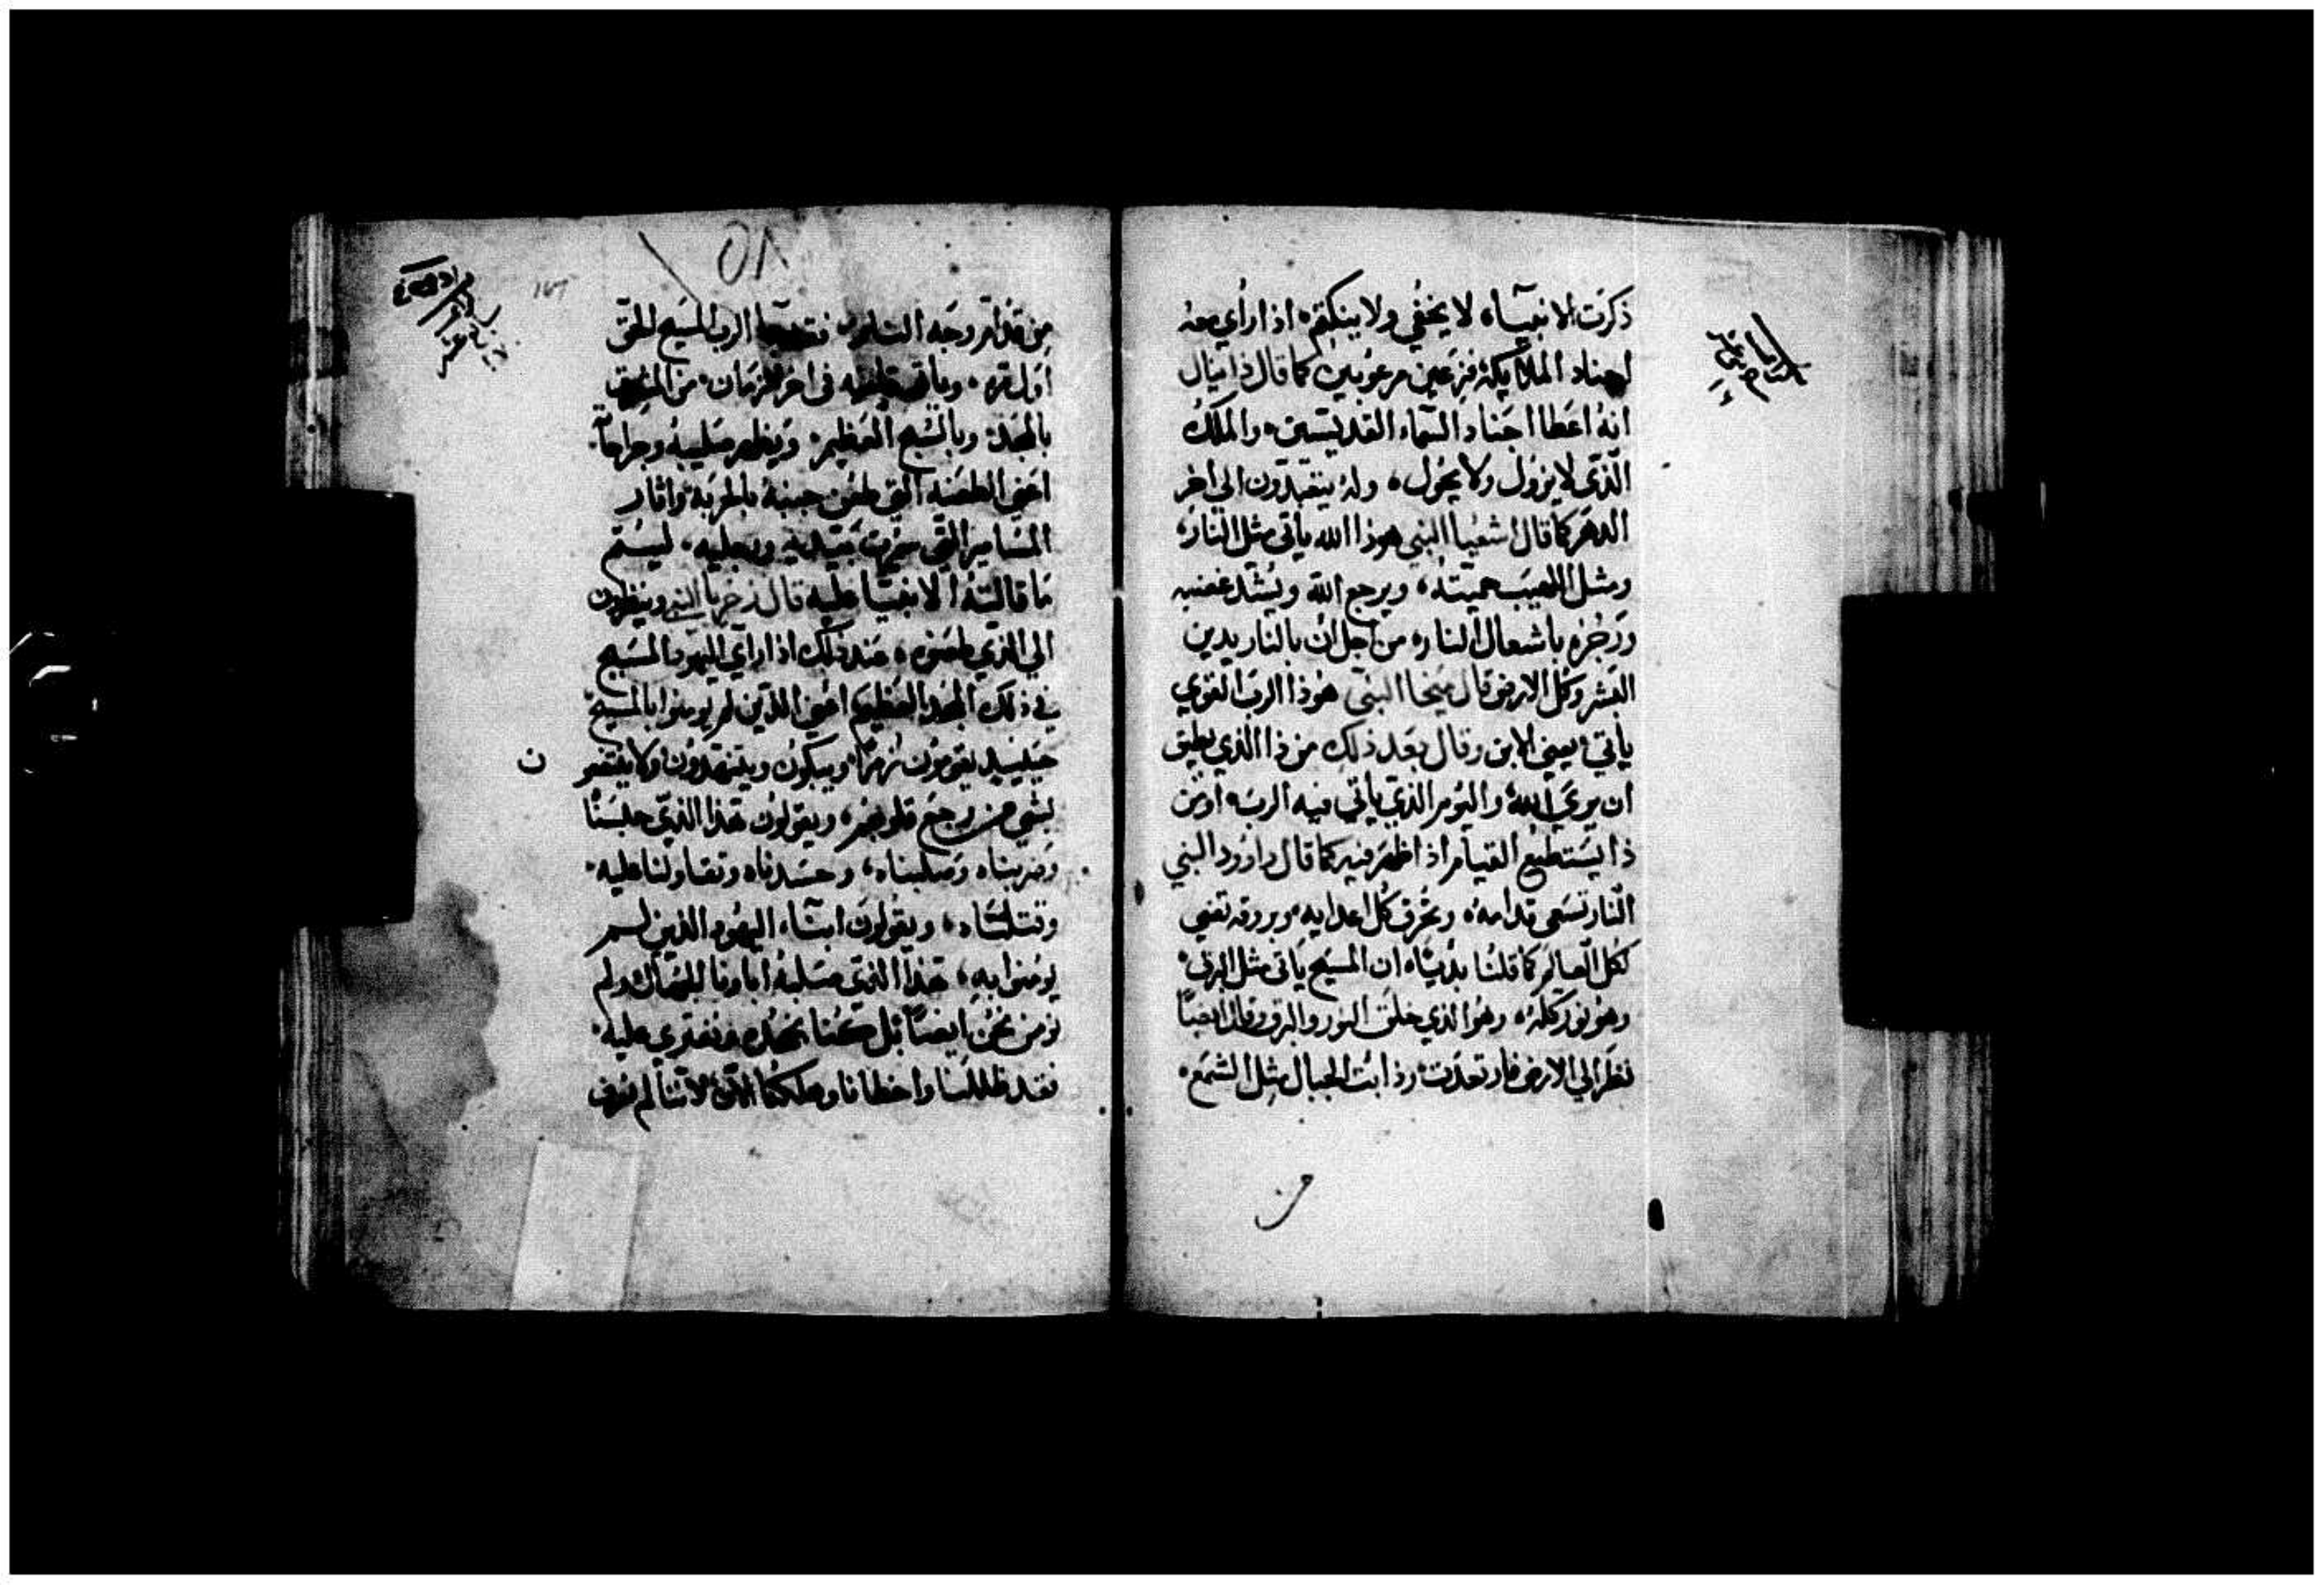 ذكرت الانبياء لا يخفي ولا ينكتم اذا رأي معه
اجناد الملايكة فزعين مرعوبين كما قال دانيال
انه اعطا اجناد السماء القديسين والملك
الذي لا يزول ولا يحول وله يتعبدون الي اخر
الدهر كما قال اشعيا النبي هوذا الله يأتي مثل النار
ومثل اللهيب حميته ويرجع الله ويشتد غضبه
ورجزه باشعال النار من اجل ان بالنار يدين
البشر وكل الارض قال ميخا النبي هوذا الرب القوي
يأتي يعني الابن وقال بعد ذلك من ذا الذي يطيق
ان يري الله واليوم الذي يأتي فيه الرب او من
ذا يستطيع القيام اذا ظهر فيه كما قال داوود النبي
النار تسعي قدامه وتحرق كل اعدايه وبروقه تضي
لكل العالم كما قلنا بديًا ان المسيح يأتي مثل البرق
وهو نور كله وهو الذي خلق النور والبرق وقال ايضًا
نظر الي الارض فارتعدت وذابت الجبال مثل الشمع
من
٥٨
من قدام وجه الرب المسيح
اول مره في اخر الزمان من
بالمجد وبالتسبيح العظيم ويظهر صليبه وجراحاته
اعني الطعنه التي طعن جنبه بالحربة واثار
المسامير التي سمرت بيديه ورجليه ليستتم
ما قالته الانبيا عليه قال زخريا النبي وينظرون
الي الذي طعنوه عند ذلك اذا رأي اليهود المسيح
في ذلك المجد العظيم اعني الذين لم يومنوا بالمسيح
حينيذ يقومون زمرًا ويبكون ويتنهدون ولا
بشي من وجع قلوبهم ويقولون هذا الذي
وضربناه وصلبناه وحسدناه وتقاولنا عليه
وقتلناه ويقولون ابناء اليهود الذين لم
يومنوا به هذا الذي صلبه اباونا ولم
نومن نحن ايضًا بل كنا نجحده ونفتري عليه
فقد ظللنا واخطانا وهلكنا لاننا لم نعرف